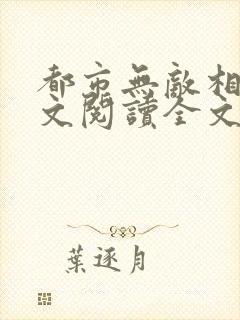 都市無敵相
文閱讀全文
葉逐月